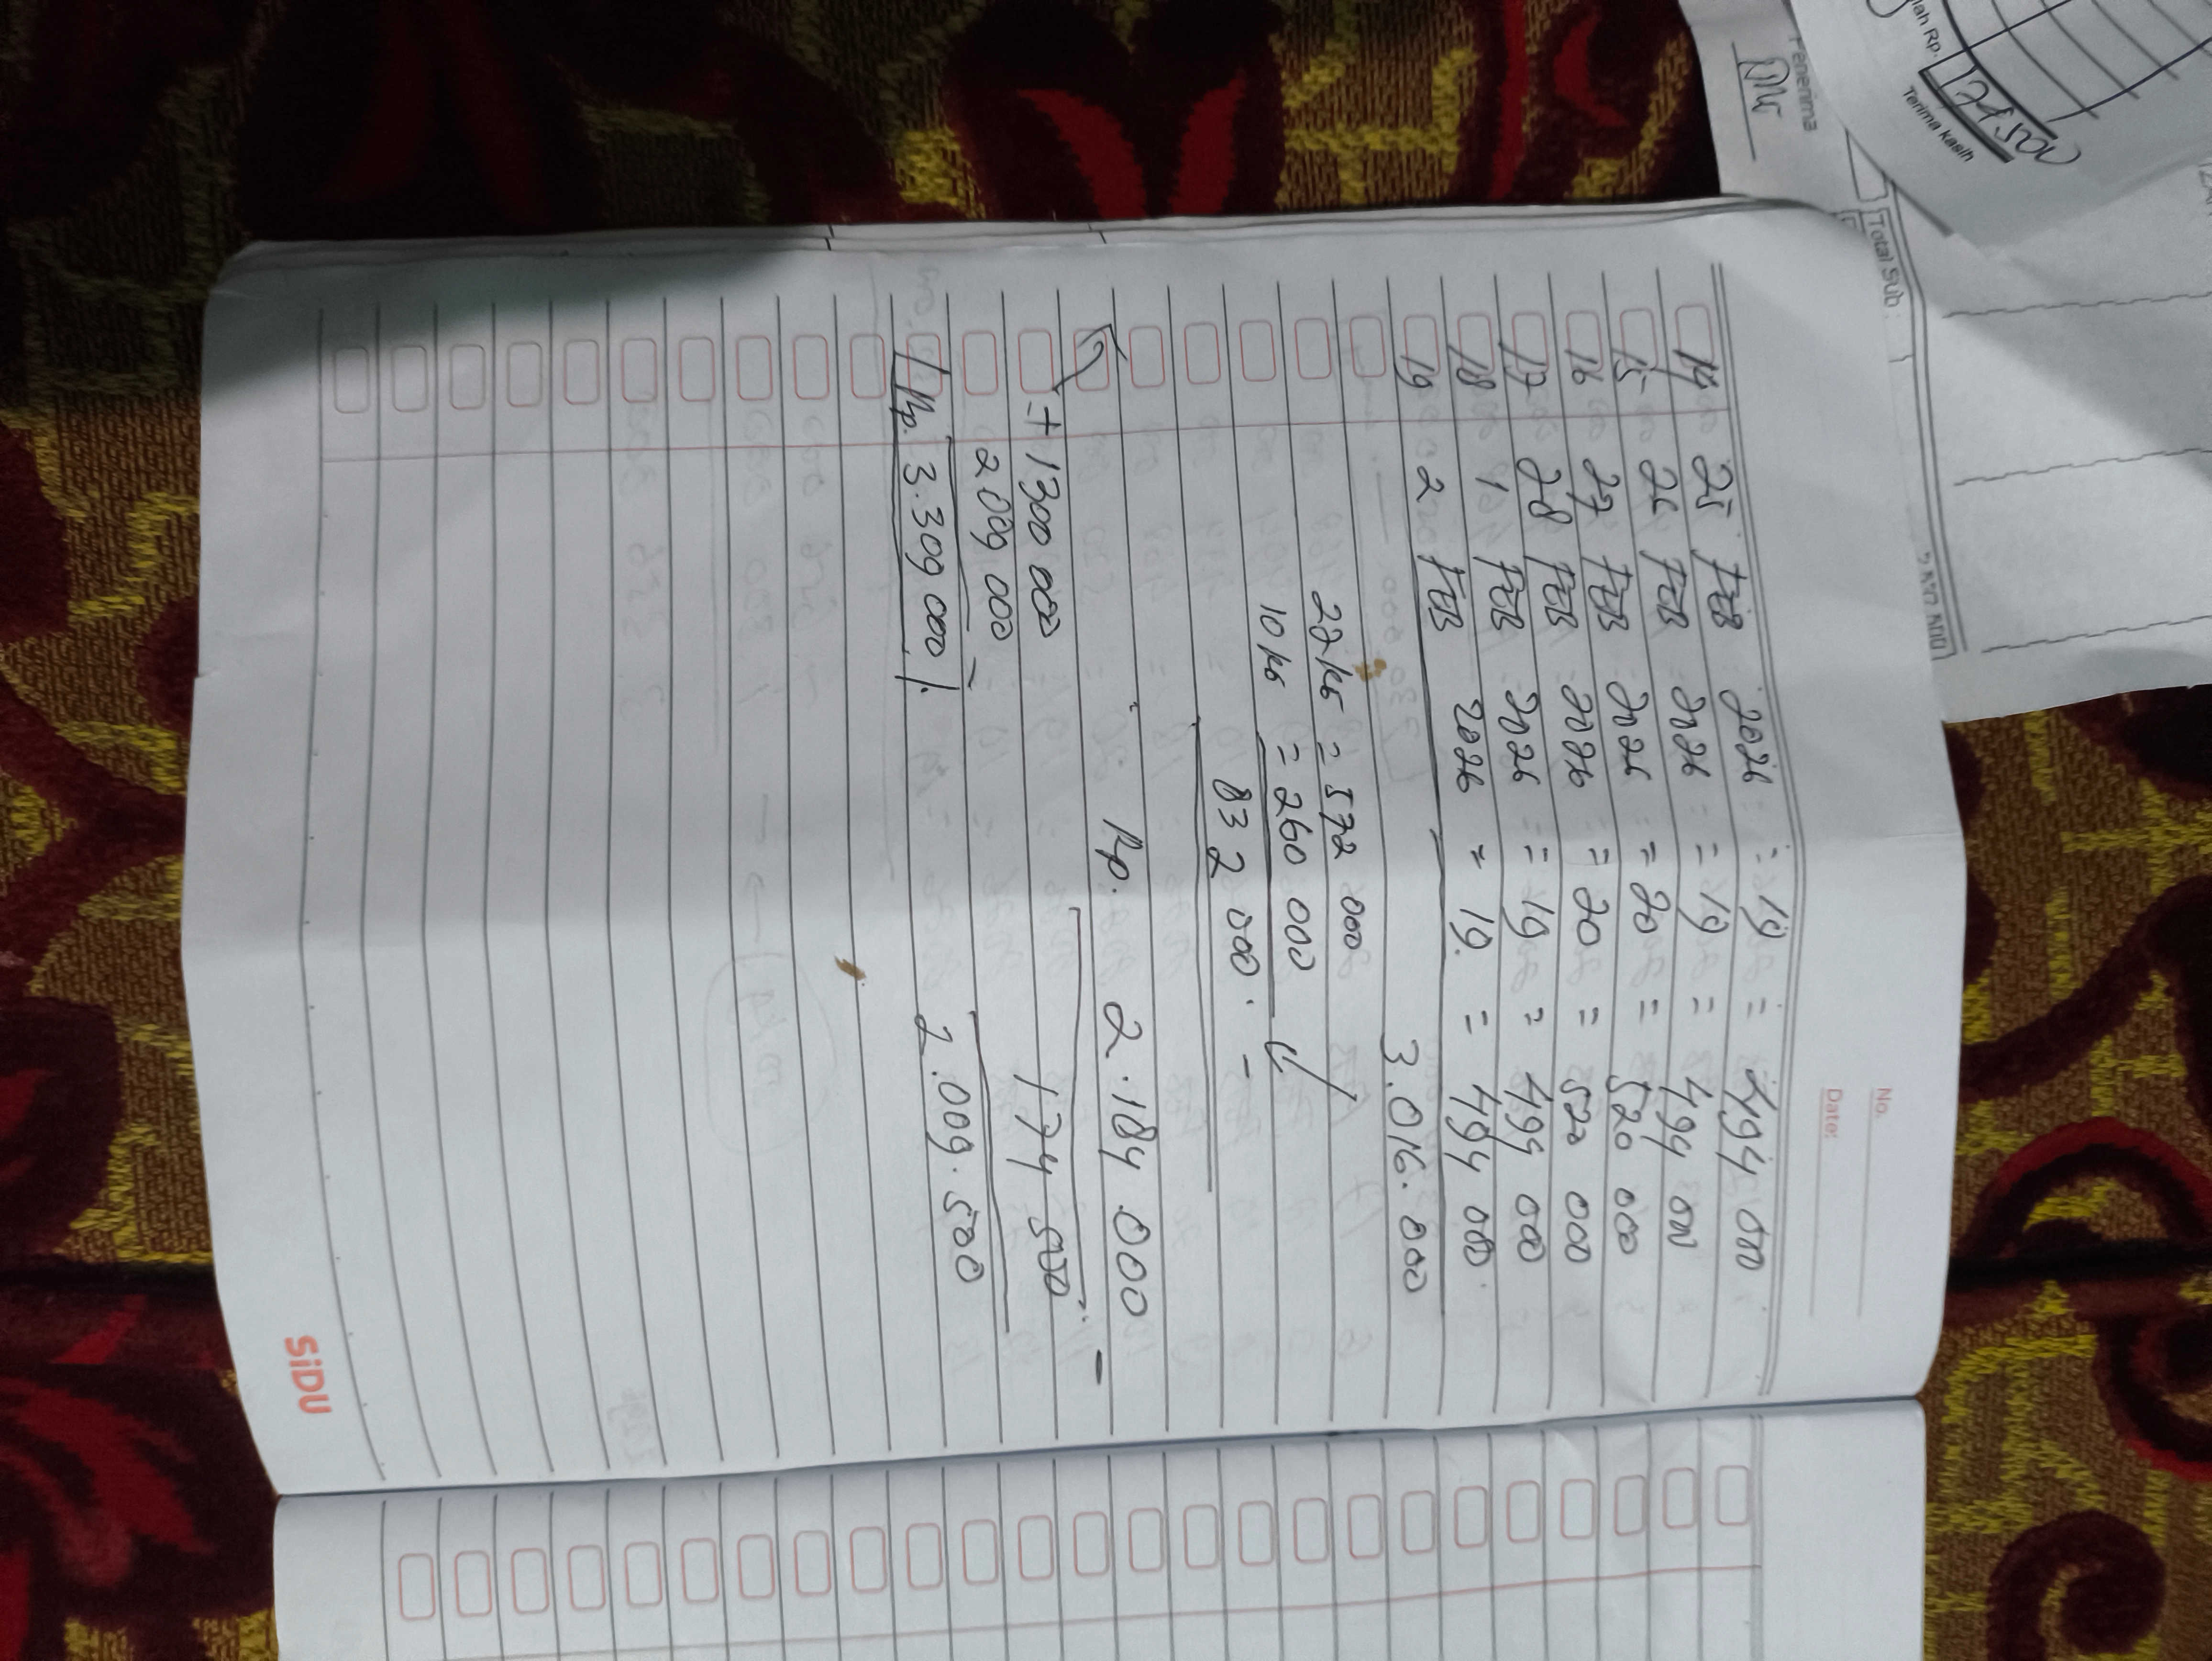 No.
Date:
14 25 FEB 2026 = 19 = 494 000
15 26 FEB 2026 = 19 = 494 000
16 27 FEB 2026 = 20 = 520 000
17 28 FEB 2026 = 20 = 520 000
18 1 FEB 2026 = 19 = 494 000
19 2 FEB 2026 = 19. = 494 000.
3.016.000
22 KG = 572 000
10 KG = 260 000
832 000. -
Rp. 2.184.000
174 500 -
2.009.500
+ 1300 000
2.009 000
Rp. 3.309 000
SiDU
Penerima
Total Sub :
lah Rp.
174500
Terima kasih